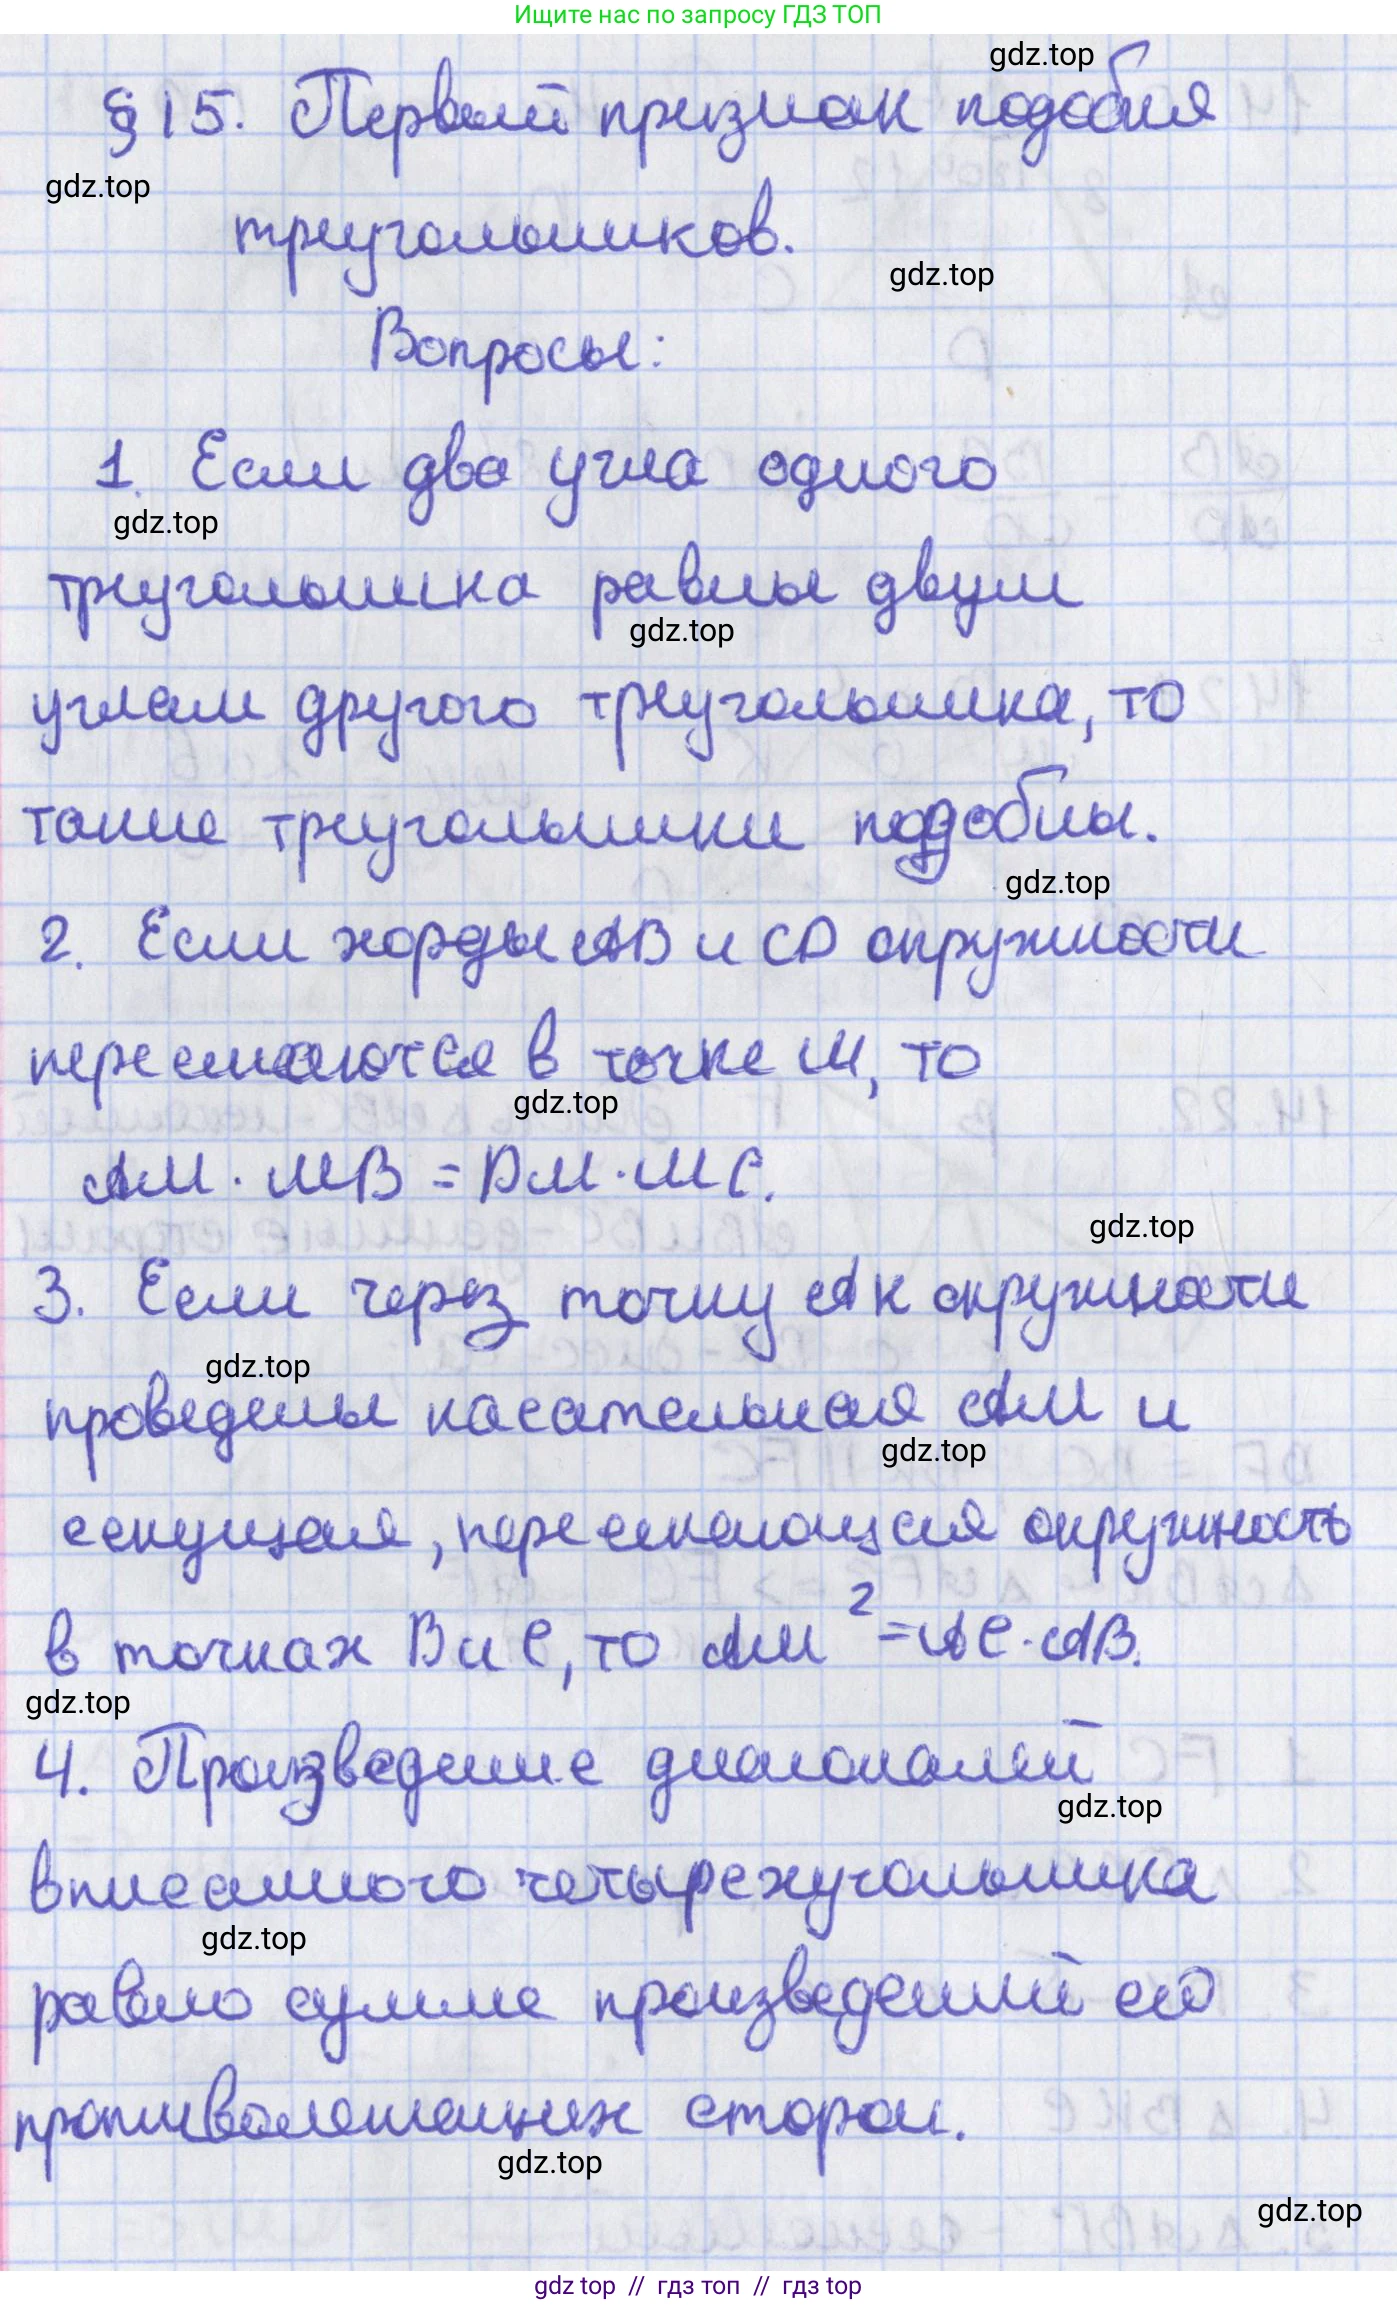 Ищите нас по запросу ГДЗ ТОП
gdz.top
§ 15. Первый признак подобия
gdz.top
треугольников.
gdz.top
Вопросы:
1. Если два угла одного
gdz.top
треугольника равны двум
gdz.top
углам другого треугольника, то
такие треугольники подобны.
gdz.top
2. Если хорды AB и CD окружности
пересекаются в точке M, то
gdz.top
AM · MB = DM · MC.
gdz.top
3. Если через точку A к окружности
gdz.top
проведены касательная AM и
gdz.top
секущая, пересекающая окружность
в точках B и C, то AM² = AC · AB.
gdz.top
4. Произведение диагоналей
gdz.top
вписанного четырехугольника
gdz.top
равно сумме произведений его
противолежащих сторон.
gdz.top
gdz.top
gdz top // гдз топ // гдз top